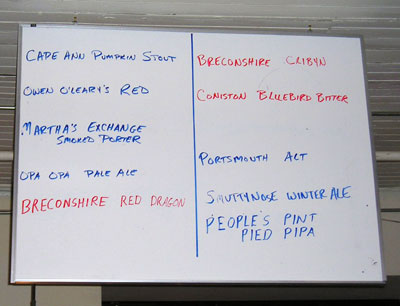 CAPE ANN PUMPKIN STOUT
OWEN O'LEARY'S RED
MARTHA'S EXCHANGE
SMOKED PORTER
OPA OPA PALE ALE
BRECONSHIRE RED DRAGON
BRECONSHIRE CRIBYN
CONISTON BLUEBIRD BITTER
PORTSMOUTH ALT
SMUTTYNOSE WINTER ALE
PEOPLE'S PINT
PIED PIPA